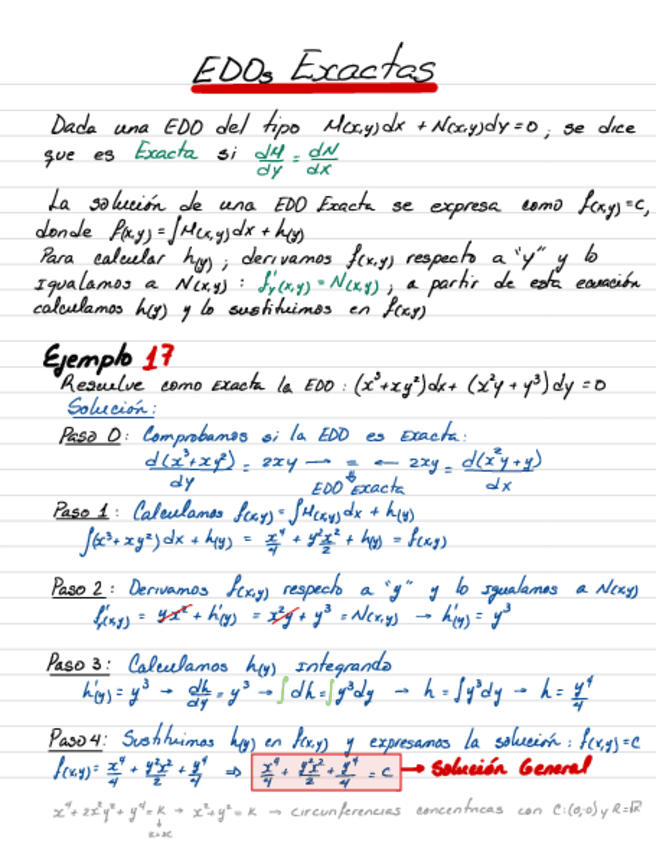 EDOs Exactas
Dada una EDO del tipo M(x,y)dx + N(x,y)dy = 0, se dice
que es Exacta si dM/dy = dN/dx
La solución de una EDO Exacta se expresa como f(x,y)=C,
donde f(x,y) = ∫M(x,y)dx + h(y)
Para calcular h(y), derivamos f(x,y) respecto a "y" y lo
Igualamos a N(x,y) : f'y(x,y) = N(x,y), a partir de esta ecuación
calculamos h(y) y lo sustituimos en f(x,y)
Ejemplo 17
Resuelve como Exacta la EDO : (x³+xy²)dx + (x²y + y³)dy = 0
Solución:
Paso 0: Comprobamos si la EDO es Exacta:
d(x³+xy²)/dy = 2xy → = ← 2xy = d(x²y+y)/dx
EDO Exacta
Paso 1: Calculamos f(x,y) = ∫M(x,y)dx + h(y)
∫(x³+xy²)dx + h(y) = x⁴/4 + y²x²/2 + h(y) = f(x,y)
Paso 2: Derivamos f(x,y) respecto a "y" y lo Igualamos a N(x,y)
f'y(x,y) = yx² + h'(y) = x²y + y³ = N(x,y) → h'(y) = y³
Paso 3: Calculamos h(y) Integrando
h'(y) = y³ → dh/dy = y³ → ∫dh = ∫y³dy → h = ∫y³dy → h = y⁴/4
Paso 4: Sustituimos h(y) en f(x,y) y expresamos la solución : f(x,y)=C
f(x,y) = x⁴/4 + y²x²/2 + y⁴/4 ⇒ x⁴/4 + y²x²/2 + y⁴/4 = C → Solución General
x⁴ + 2x²y² + y⁴ = K → x² + y² = K → circunferencias concentricas con C:(0,0) y R=√K